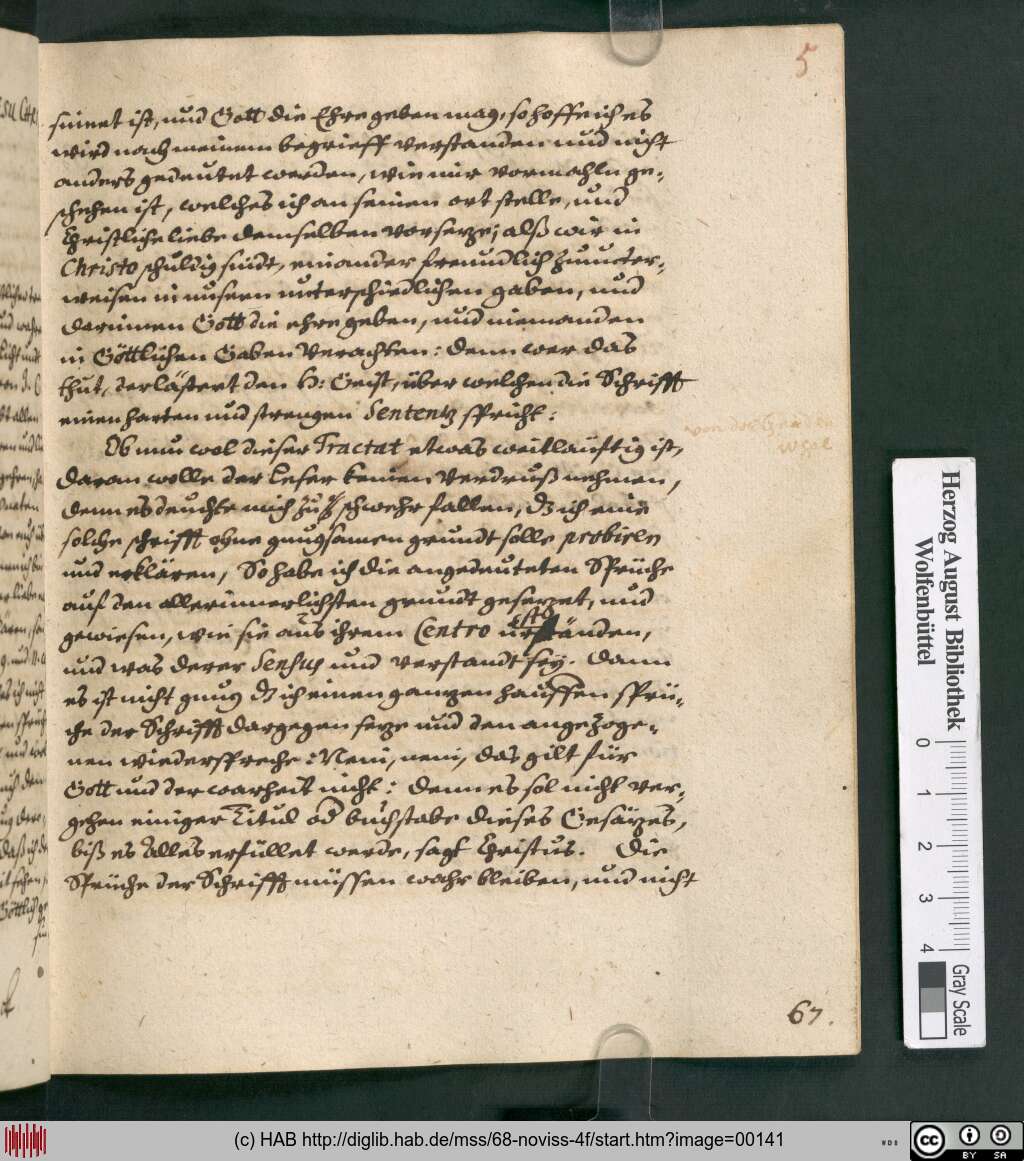 5
sinnet ist, und Gott die Ehre geben mag, so hoffe ich es
wird nach meinem begrieff verstanden und nicht
anders gedeutet werden, wie mir vormahln ge-
schehen ist, welches ich an seinen ort stelle, und
Christliche liebe demselben vorseze; alß wir in
Christo schuldig sindt, einander freundlich zuunter-
weisen in unsern unterschiedlichen gaben, und
darinnen Gott die ehre geben, und niemanden
in Göttlichen Gaben verachten: denn wer das
thut, der lästert den H: Geist, über welchen die Schrifft
einen harten und strengen Sententz spricht:
Ob nun wol dieser Tractat etwas weitläufftig ist,
daran wolle der Leser keinen verdruß nehmen,
denn es deuchte mich zu schwehr fallen, dz ich eine
solche schrifft ohne gnugsamen grundt solle probieln
und erklären, So habe ich die angedeuteten Sprüche
auf den allerinnerlichsten grundt gesezzet, und
gewiesen, wie sie aus ihrem Centro urständen,
und was derer Sensus und verstandt sey. Dann
es ist nicht gnug dz ich einen ganzen hauffen sprü-
che der Schrifft dargegen seze und den angezoge-
nen wiederspreche: Nein, nein, das gilt für
Gott und der warheit nicht: denn es sol nicht ver-
gehen einiger Titul od buchstabe dieses Gesäzes,
biß es Alles erfüllet werde, sagt Christus. Die
Sprüche der Schrifft müssen wahr bleiben, und nicht
67.
Herzog August Bibliothek
Wolfenbüttel
0 1 2 3 4
Gray Scale
(c) HAB http://diglib.hab.de/mss/68-noviss-4f/start.htm?image=00141
WDB
cc BY SA